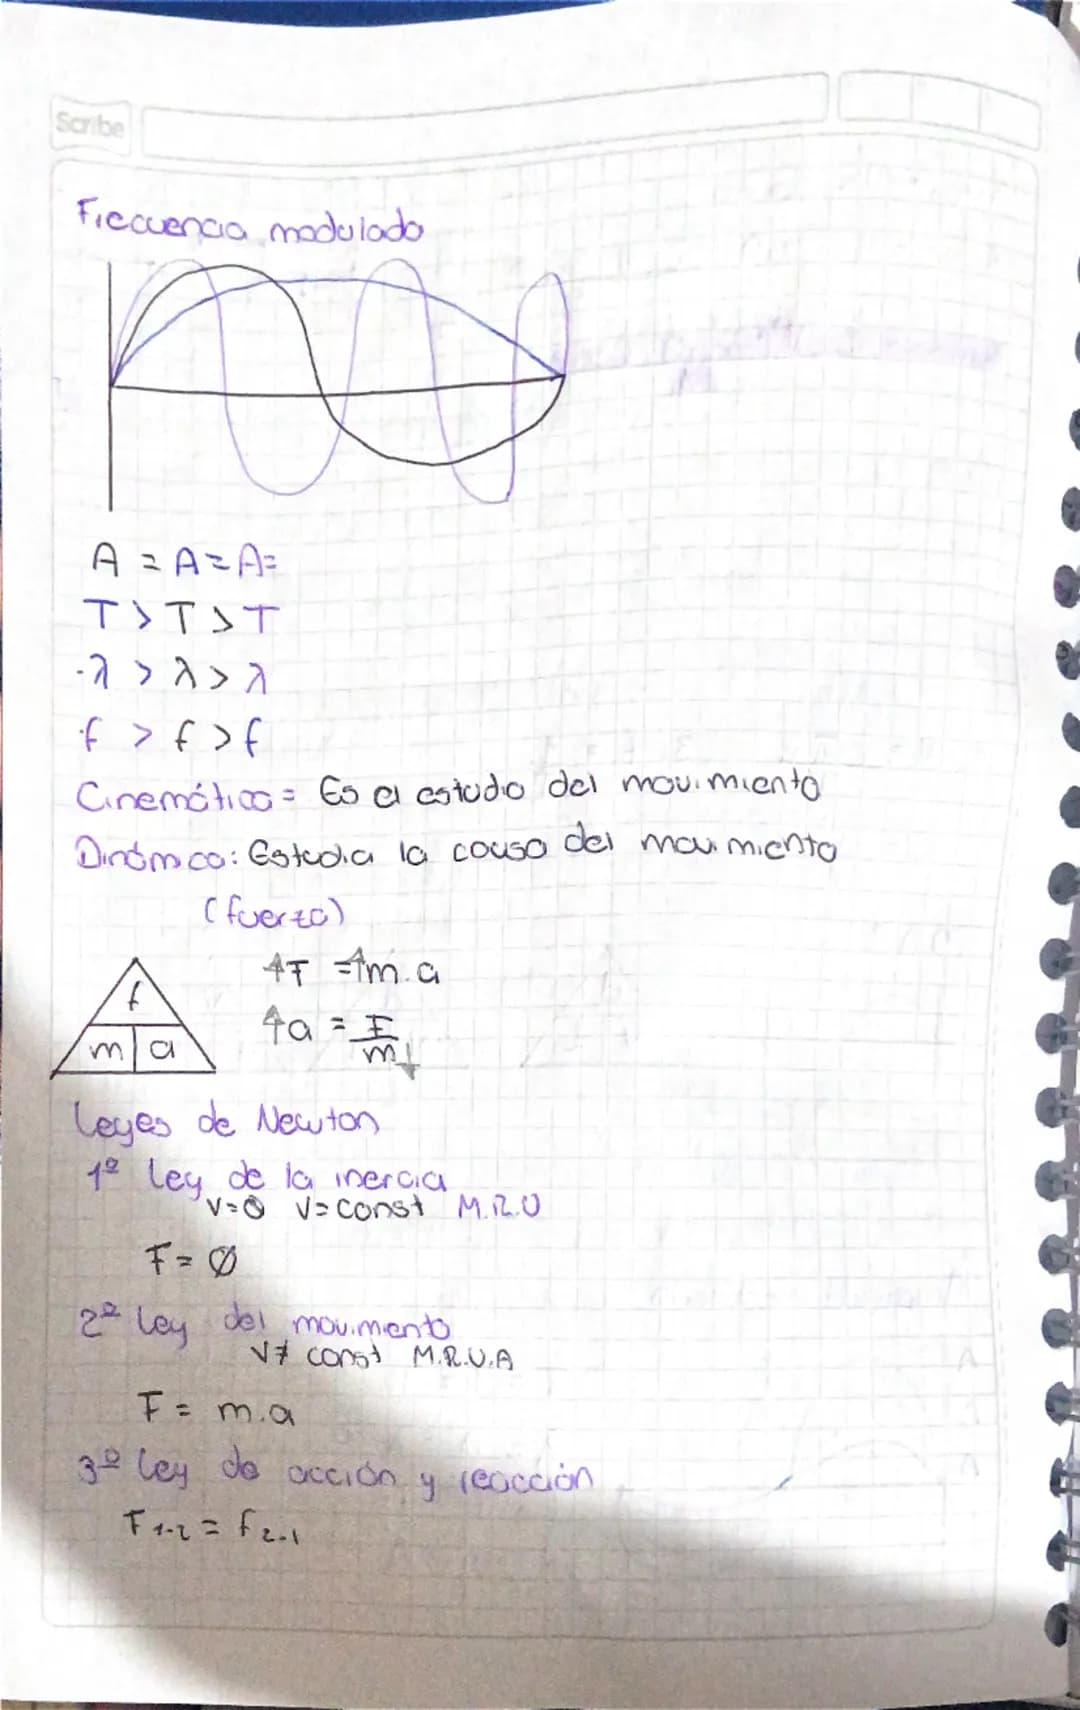 Scribe
Frecuencia modulada
A = A = A =
T > T > T
λ > λ > λ
f > f > f
Cinemática = Es el estudio del movimiento
Dinámica: Estudia la causa del movimiento
(fuerza)
↑F = ↑m.a
f
↑a = F/m↓
m a
Leyes de Newton
1º Ley de la inercia
V=0 V=const M.R.U
F = Ø
2º Ley del movimiento
V≠ const M.R.U.A
F = m.a
3º Ley de acción y reacción
F 1-2 = f 2-1